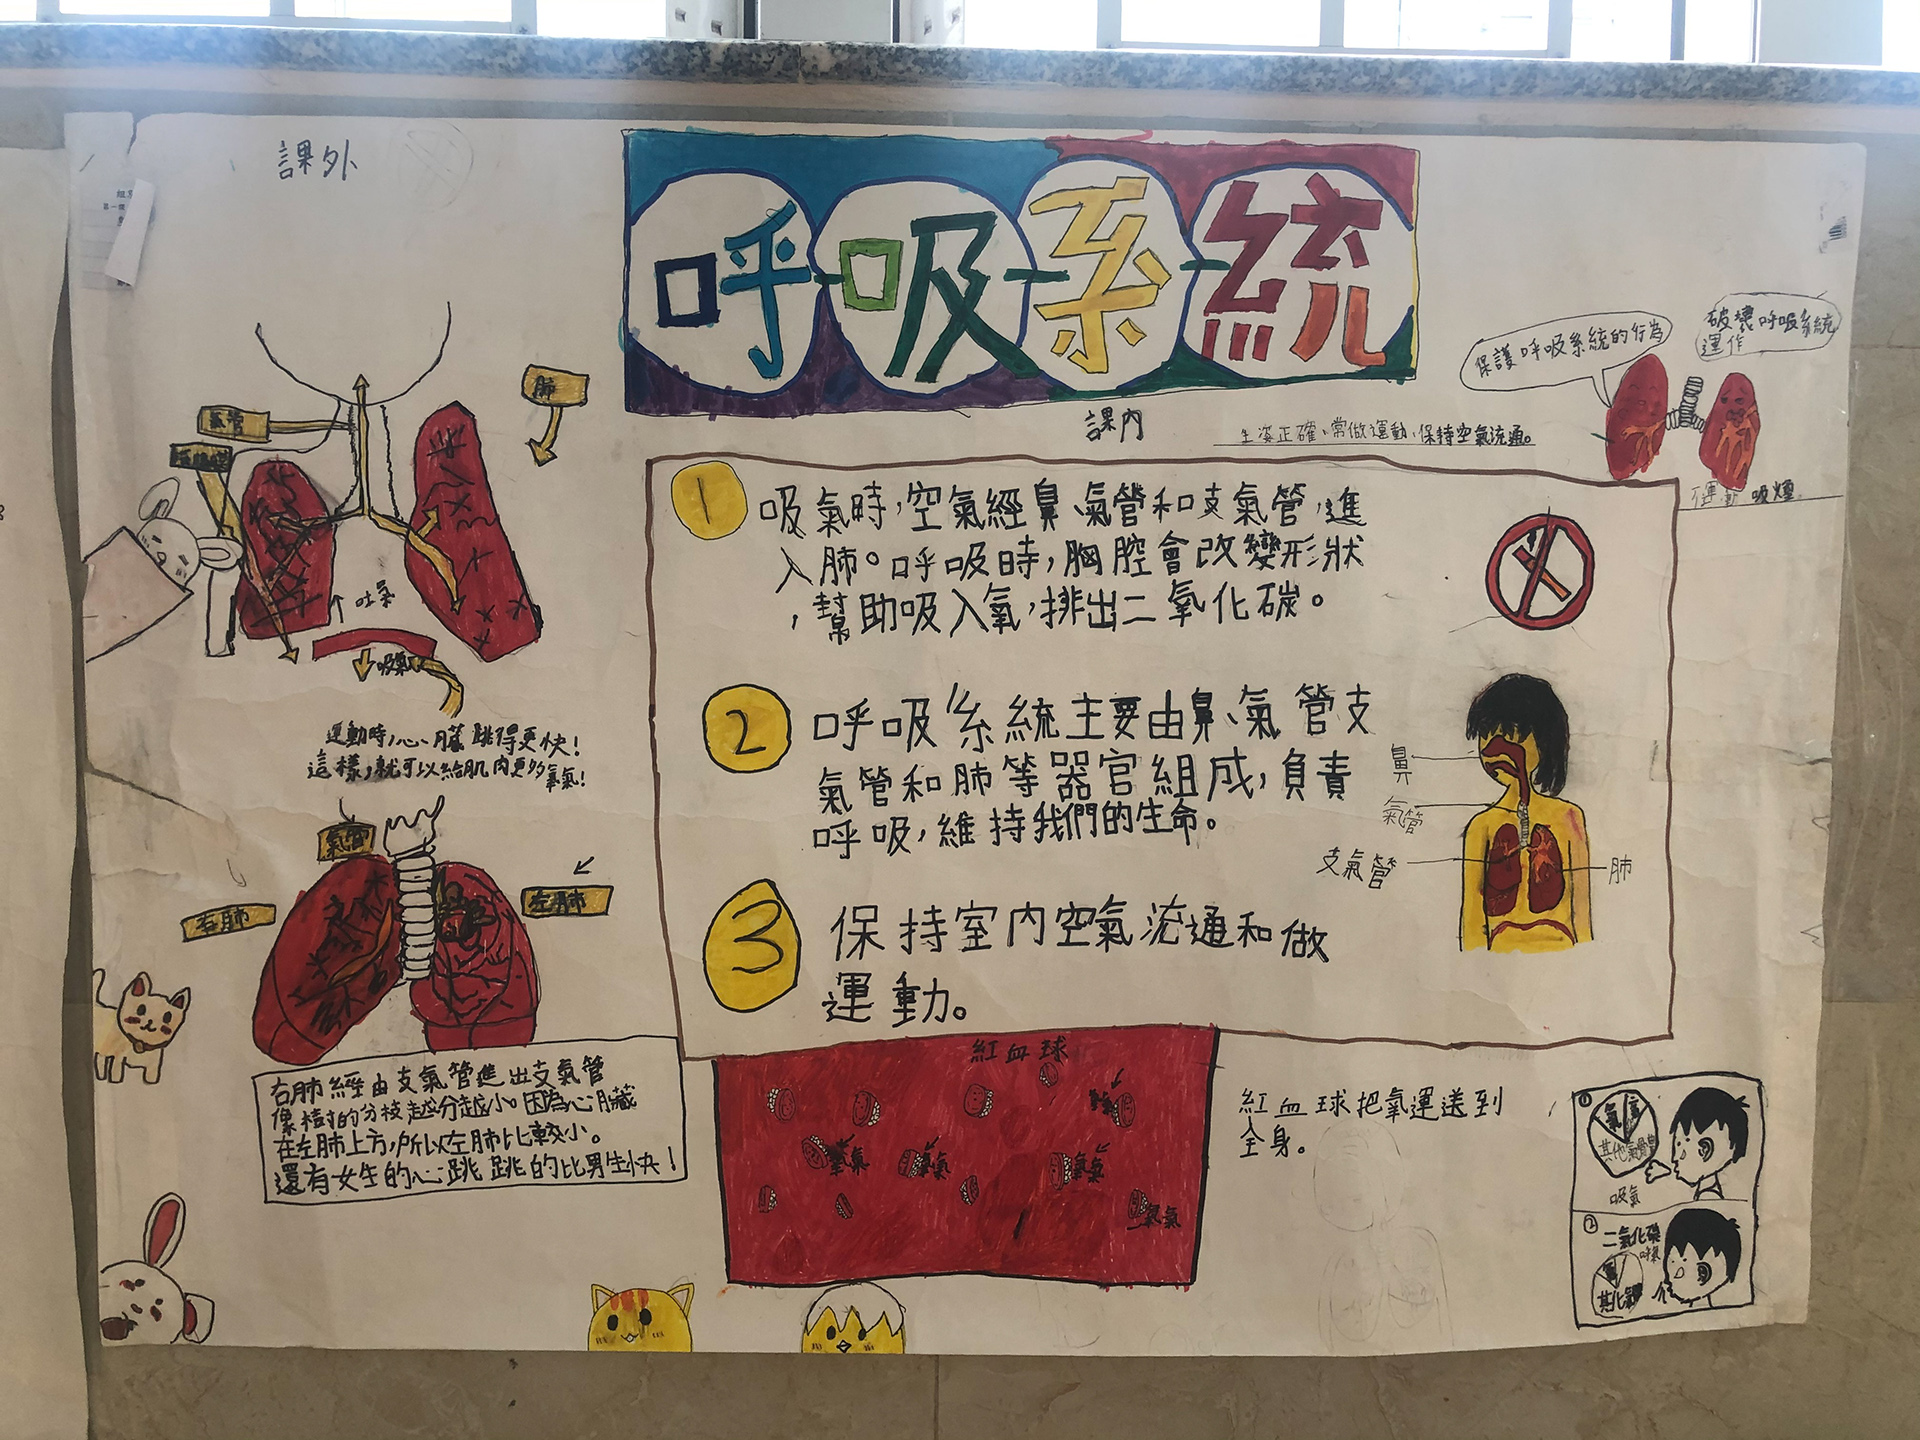 課外
呼吸系統
肺
氣管
吐氣
吸氣
運動時,心臟跳得更快!
這樣,就可以給肌肉更多氧氣!
氣管
右肺
左肺
右肺經由支氣管進出支氣管
像樹的分枝越分越小。因為心臟
在左肺上方,所以左肺比較小。
還有女生的心跳跳的比男生快!
課內
保護呼吸系統的行為
破壞呼吸系統
運作
坐姿正確、常做運動、保持空氣流通。
吸煙
1
吸氣時,空氣經鼻、氣管和支氣管,進
入肺。呼吸時,胸腔會改變形狀
,幫助吸入氧,排出二氧化碳。
2
呼吸系統主要由鼻、氣管支
氣管和肺等器官組成,負責
呼吸,維持我們的生命。
3
保持室內空氣流通和做
運動。
鼻
氣管
支氣管
肺
紅血球
氧氣
氧氣
氧氣
氧氣
紅血球把氧運送到
全身。
①
吸氣
②
二氧化碳
呼氣